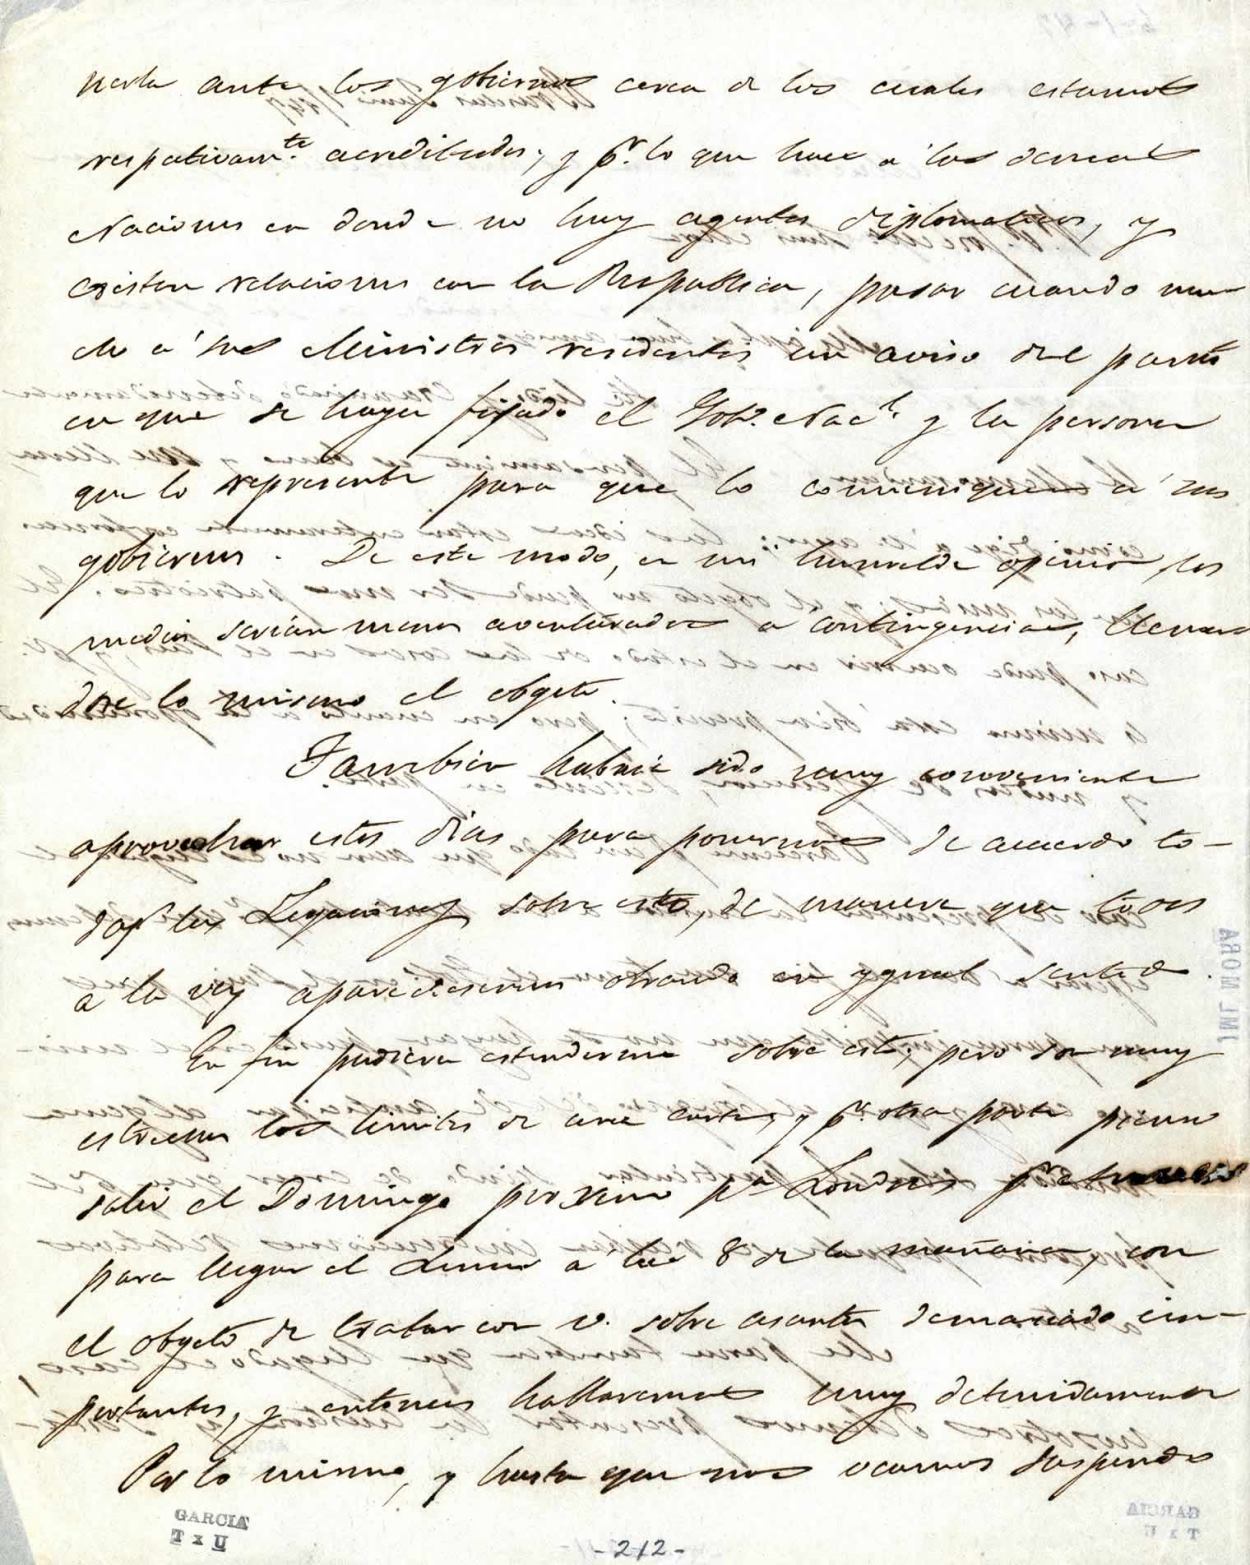 nerla ante los gobiernos cerca de los cuales estamos
respectivam.te acreditados, y p.r lo que hace a las demas
Naciones en donde no hay agentes diplomaticos, y
existen relaciones con la Republica, pasar cuando mu-
cho a sus Ministros residentes un aviso del punto
en que se haya fijado el Gob.o Nac.l y la persona
que lo represente para que lo comuniquen a sus
gobiernos. De este modo, en mi humilde opinion, los
medios serian menos aventurados a contingencias, llenan
dose lo mismo el objeto.
Tambien habria sido muy conveniente
aprovechar estos dias para ponernos de acuerdo to-
das las Legaciones sobre esto, de manera que todos
a la vez apareciesemos obrando en ygual sentido.
En fin pudiera estenderme sobre esto, pero son muy
estrechos los limites de una carta, y p.r otra parte pienso
salir el Domingo proximo p.a Londres
para llegar el Lunes a las 8 de la mañana, con
el objeto de tratar con V. sobre asuntos demaciado im-
portantes, y entonces hablaremos muy detenidamente
Por lo mismo, y hasta que nos veamos suspendo
GARCIA
T x U
-212-